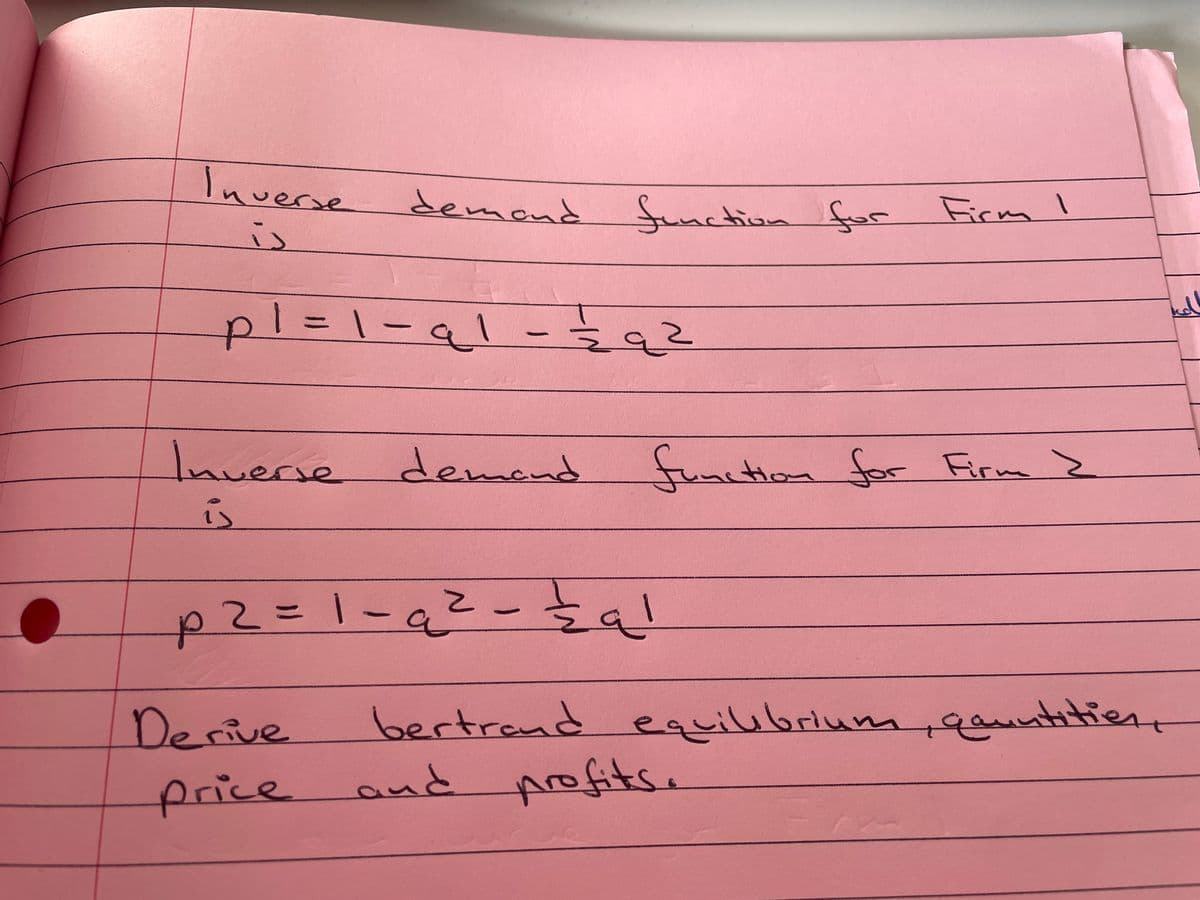 Inverse demand function for Firm 1
is
p1 = 1 - q1 - 1/2 q2
Inverse demand function for Firm 2
is
p2 = 1 - q2 - 1/2 q1
Derive bertrand equilibrium, qauntitien,
price and profits.